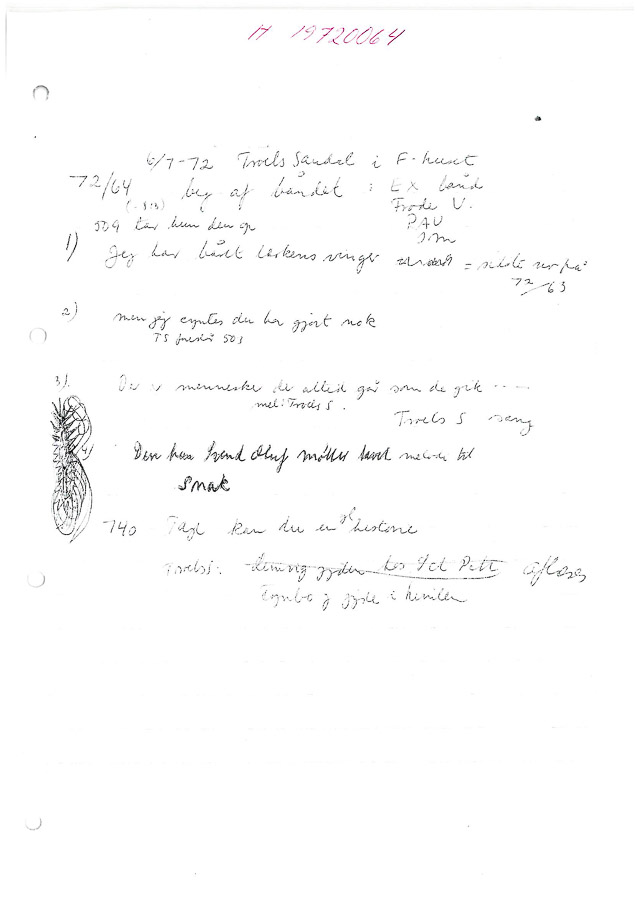 H 19720064
6/7-72 Troels Sandal i F-huset
72/64 beg af båndet : EX bånd
(-513) Frode V.
509 tar hun den op PAU
1) Jeg har båret lærkens vinger = sidste nr på
72/63
2) men jeg syntes du har gjort nok
TS 503
3) Der er mennesker der altid går som de gik ----
mel: Troels S.
Troels S sang
4) Den har Svend Oluf Møller lavet melodi til
Smak
740 Tage kan du en historie
Troels: hos Pett aflæses
gyde i